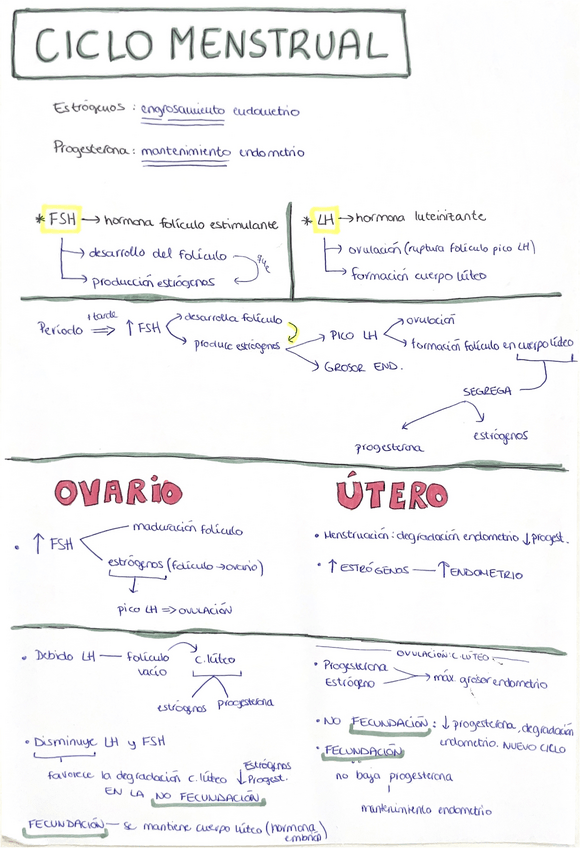 CICLO MENSTRUAL
Estrógenos: engrosamiento endometrio
Progesterona: mantenimiento endometrio
* FSH → hormona folículo estimulante
→ desarrollo del folículo
→ producción estrógenos
* LH → hormona luteinizante
→ ovulación (ruptura folículo pico LH)
→ formación cuerpo lúteo
Período ⇒ ↑ FSH
1 tarde
desarrolla folículo
produce estrógenos
PICO LH
GROSOR END.
ovulación
formación folículo en cuerpo lúteo
SEGREGA
progesterona
estrógenos
OVARIO
• ↑ FSH
maduración folículo
estrógenos (folículo → ovario)
pico LH ⇒ OVULACIÓN
ÚTERO
• Menstruación: degradación endometrio ↓ progest.
• ↑ ESTRÓGENOS — ↑ ENDOMETRIO
• Debido LH — folículo vacío
c.lúteo
estrógenos progesterona
• Disminuye LH y FSH
favorece la degradación c.lúteo ↓ Estrógenos Progest.
EN LA NO FECUNDACIÓN
FECUNDACIÓN — se mantiene cuerpo lúteo (hormona embrión)
OVULACIÓN: C. LÚTEO
• Progesterona
Estrógeno → máx. grosor endometrio
• NO FECUNDACIÓN: ↓ progesterona, degradación
endometrio. NUEVO CICLO
• FECUNDACIÓN
no baja progesterona
mantenimiento endometrio